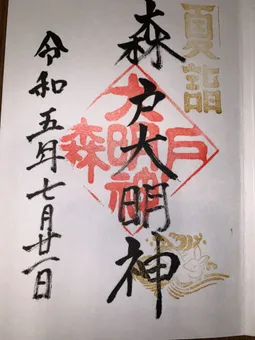 夏詣
森戸大明神
森戸大明神
令和五年七月廿一日